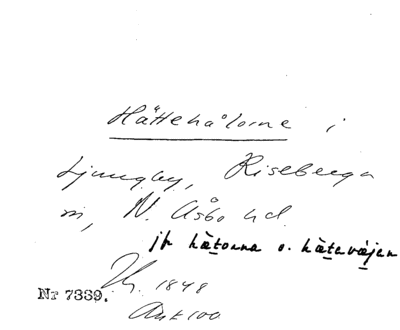 Hättehålorne i
Ljungby, Riseberga
sn, N. Åsbo hd.
jfr hätorna o. hätavägen
1848
Nr 7339.
Ant 100